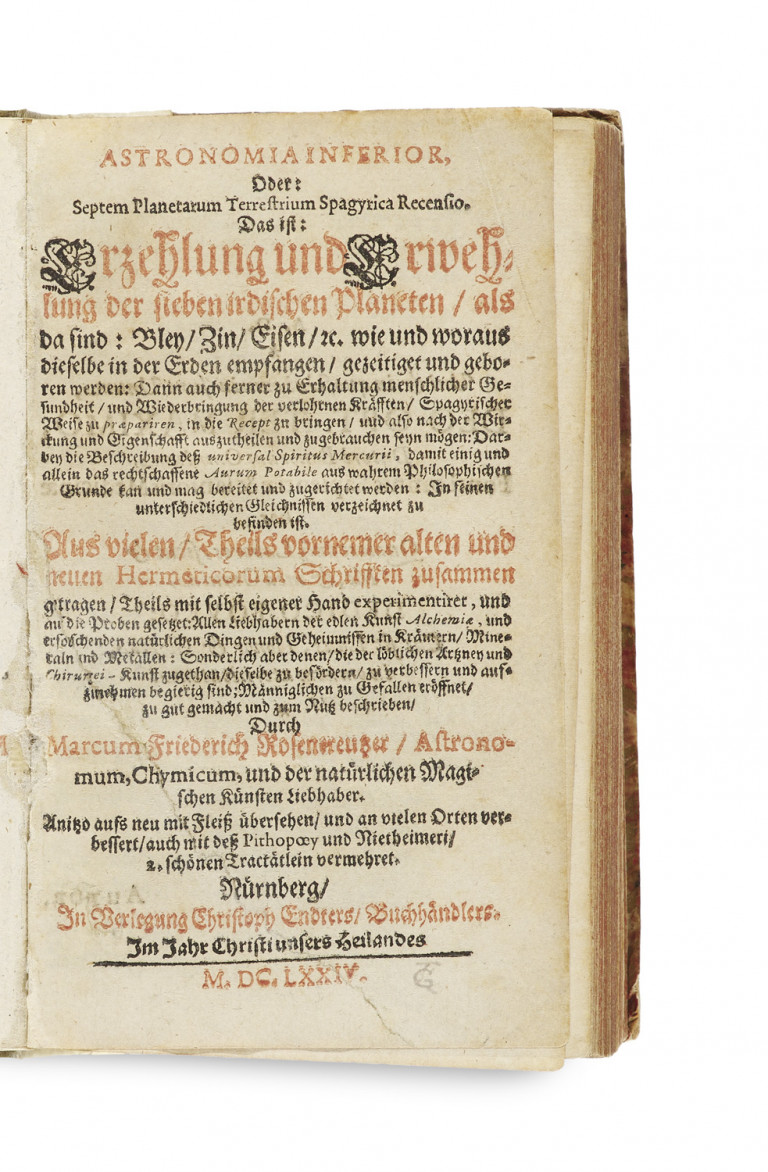 ASTRONOMIA INFERIOR,
Oder:
Septem Planetarum Terrestrium Spagyrica Recensio.
Das ist:
Erzehlung und Erweh-
lung der sieben irdischen Planeten / als
da sind: Bley/ Zin/ Eisen/ ꝛc. wie und woraus
dieselbe in der Erden empfangen/ gezeitiget und gebo-
ren werden: Dann auch ferner zu Erhaltung menschlicher Ge-
sundheit / und Wiederbringung der verlohrnen Kräfften/ Spagyrischer
Weise zu præpariren, in die Recept zu bringen / und also nach der Wir-
ckung und Eigenschafft auszutheilen und zugebrauchen seyn mögen: Dar-
bey die Beschreibung deß universal Spiritus Mercurii, damit einig und
allein das rechtschaffene Aurum Potabile aus wahrem Philosophischen
Grunde kan und mag bereitet und zugerichtet werden: In seinen
unterschiedlichen Gleichnissen verzeichnet zu
befinden ist.
Aus vielen/ Theils vornemer alten und
neuen Hermeticorum Schrifften zusammen
getragen/ Theils mit selbst eigener Hand experimentiret, und
auf die Proben gesetzet: Allen Liebhabern der edlen Kunst Alchemiæ, und
erforschenden natürlichen Dingen und Geheimnissen in Kräutern/ Mine-
raln und Metallen: Sonderlich aber denen/ die der löblichen Artzney und
Chirurgei-Kunst zugethan/ dieselbe zu befördern/ zu verbessern und auf-
zunehmen begierig sind; Männiglichen zu Gefallen eröffnet/
zu gut gemacht und zum Nutz beschrieben/
Durch
Marcum Friederich Rosenkreutzer / Astrono-
mum, Chymicum, und der natürlichen Magi-
schen Künsten Liebhaber.
Anitzo aufs neu mit Fleiß übersehen/ und an vielen Orten ver-
bessert/ auch mit deß Pithopœy und Nietheimeri/
2. schönen Tractätlein vermehret.
Nürnberg/
In Verlegung Christoph Endters/ Buchhändlers.
Im Jahr Christi unsers Heilandes
M. DC. LXXIV.